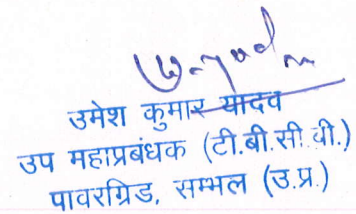 उमेश कुमार यादव
उप महाप्रबंधक (टी.बी.सी.बी.)
पावरग्रिड, सम्भल (उ.प्र.)